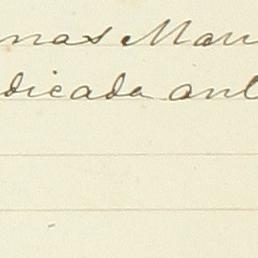 nas Man
dicada ant